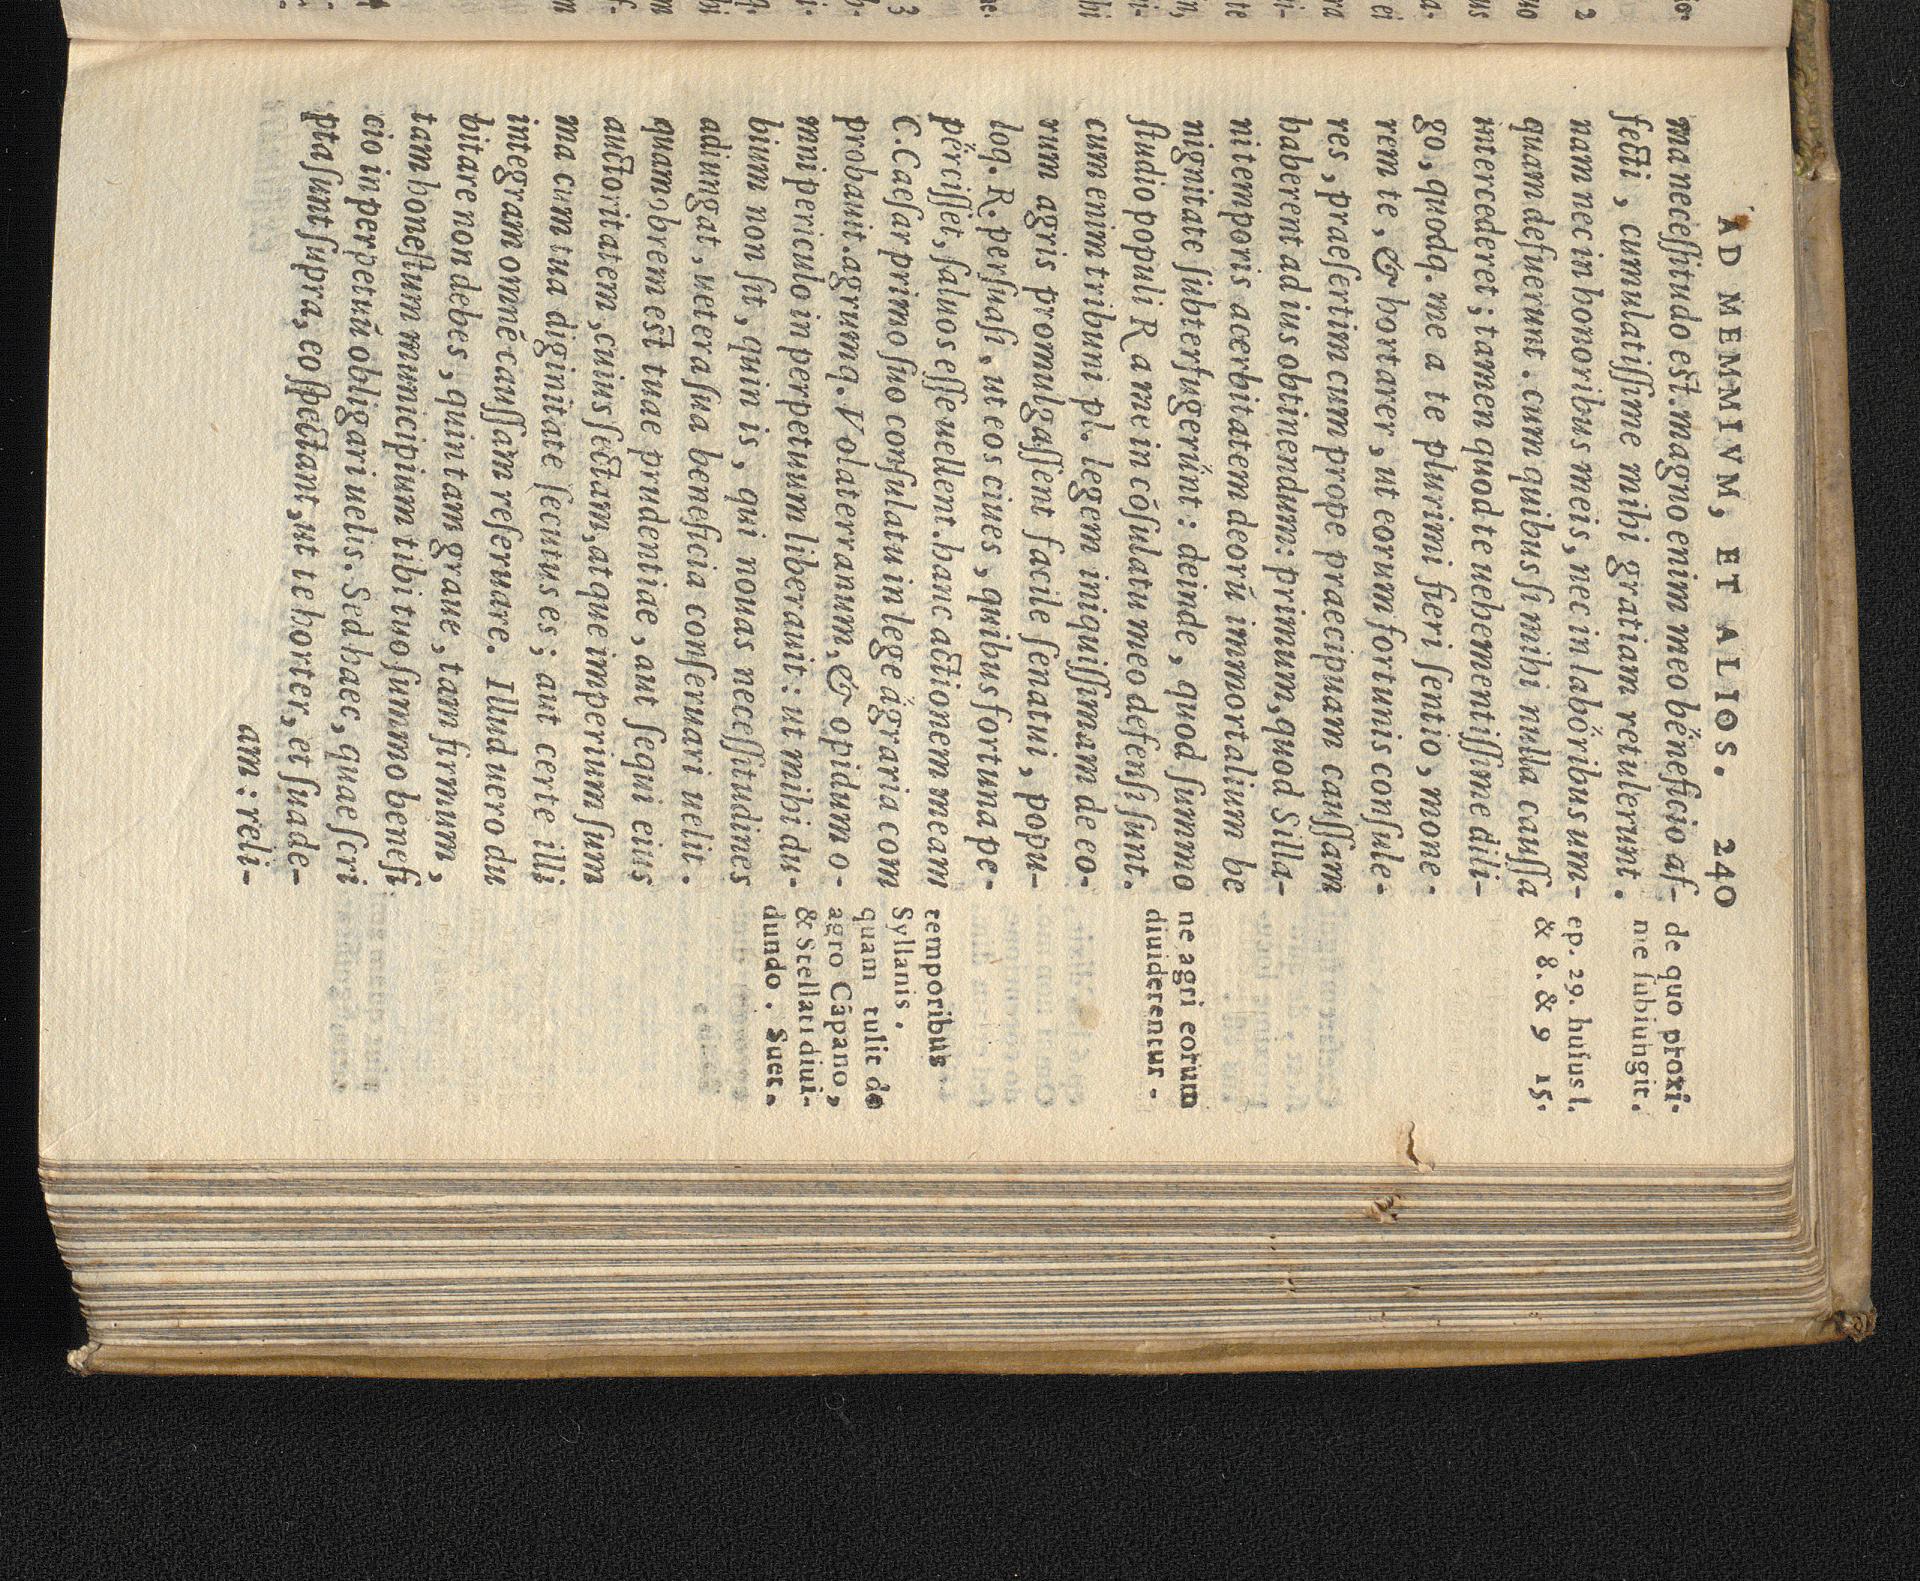 AD MEMMIVM, ET ALIOS. 240
ma necessitudo est. magno enim meo beneficio af-
fecti, cumulatissime mihi gratiam retulerunt.
nam nec in honoribus meis, nec in laboribus um-
quam defuerunt. cum quibus si mihi nulla caussa
intercederet; tamen quod te uehementissime dili-
go, quodq. me a te plurimi fieri sentio, mone-
rem te, & hortarer, ut eorum fortunis consule-
res, praesertim cum prope praecipuam caussam
haberent ad ius obtinendum: primum, quod Silla-
ni temporis acerbitatem deorū immortalium be
nignitate subterfugerūnt: deinde, quod summo
studio populi Rame in cōsulatu meo defensi sunt.
cum enim tribuni pl. legem iniquissimam de eo-
rum agris promulgassent facile senatui, popu-
loq. R. persuasi, ut eos ciues, quibus fortuna pe-
perciſſet, saluos esse uellent. hanc actionem meam
C. Caesar primo suo consulatu in lege agraria com
probauit. agrumq. Volaterranum, & opidum o-
mni periculo in perpetuum liberauit: ut mihi du-
bium non sit, quin is, qui nouas necessitudines
adiungat, uetera sua beneficia conseruari uelit.
quamobrem est tuae prudentiae, aut sequi eius
auctoritatem, cuius sectam, atque imperium sum
ma cum tua diginitate secutus es; aut certe illi
integram omnē caussam reseruare. Illud uero du
bitare non debes, quin tam graue, tam firmum,
tam honestum municipium tibi tuo summo benefi
cio in perpetuū obligari uelis. Sed haec, quae scri
pta sunt supra, eo spectant, ut te horter, et suade-
am: reli-
de quo proxi-
me subiungit.
ep. 29. huius l.
& 8. & 9 15.
ne agri eorum
diuiderentur.
temporibus
Syllanis.
quam tulit de
agro Cāpano,
& Stellati diui-
dundo. Suet.